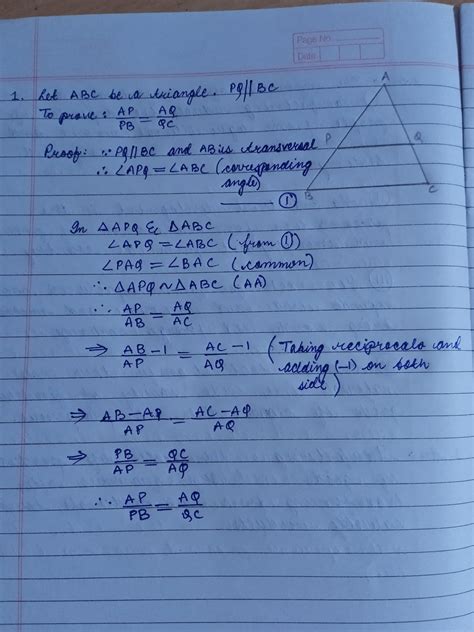 Page No.
Date
1. Let ABC be a triangle. PQ||BC
To prove: AP/PB = AQ/QC
Proof: ∵ PQ||BC and AB is transversal
∴ ∠APQ = ∠ABC (corresponding
angle)
—— ①
A
P
Q
B
C
In △APQ & △ABC
∠APQ = ∠ABC (from ①)
∠PAQ = ∠BAC (common)
∴ △APQ ~ △ABC (AA)
∴ AP/AB = AQ/AC
⇒ AB/AP - 1 = AC/AQ - 1 (Taking reciprocals and
adding (-1) on both
side)
⇒ AB-AP/AP = AC-AQ/AQ
⇒ PB/AP = QC/AQ
∴ AP/PB = AQ/QC